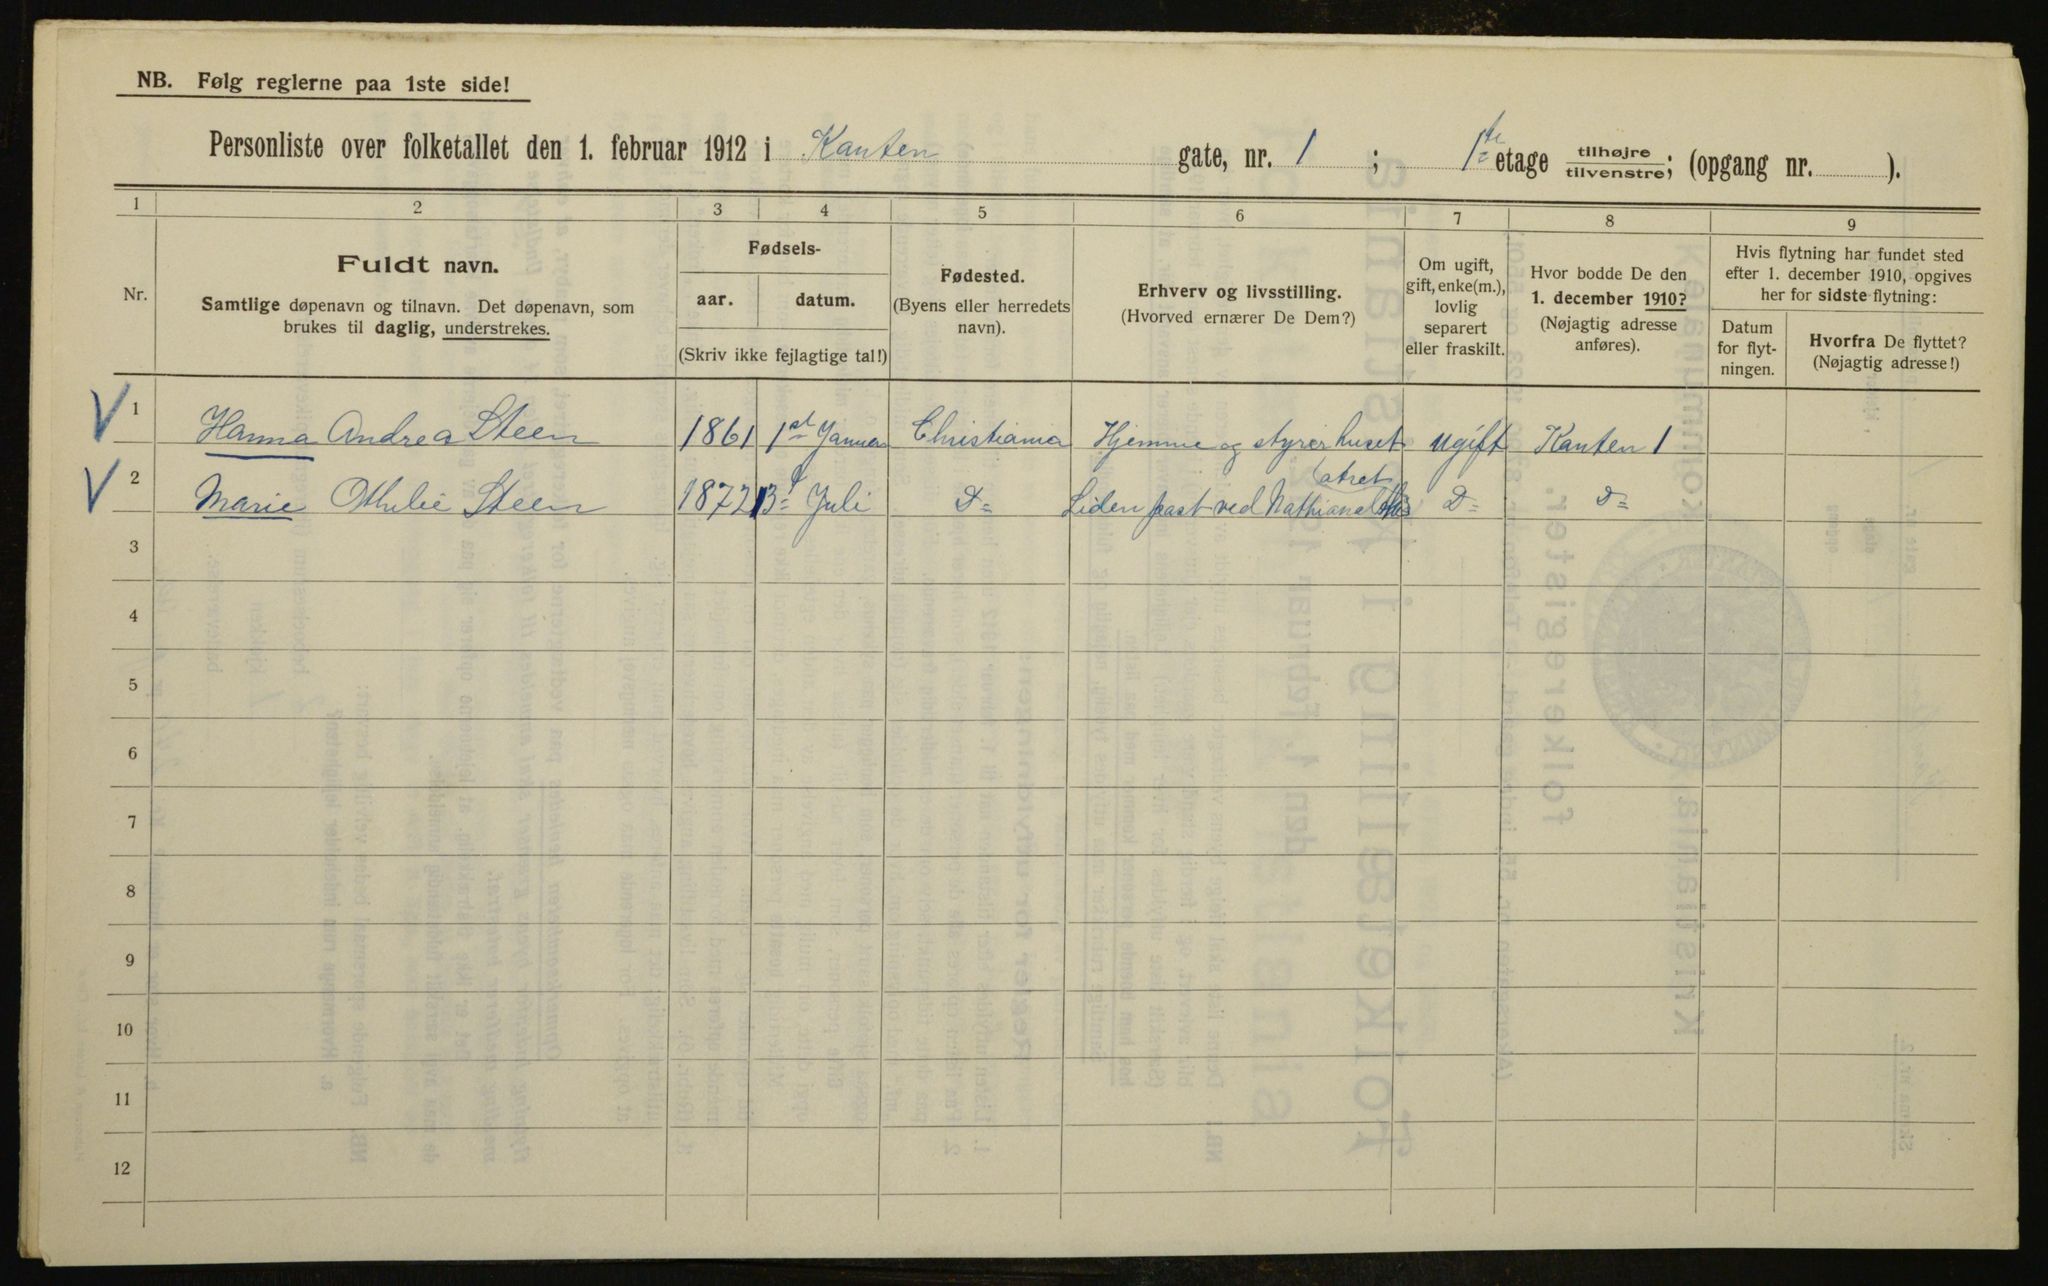 NB. Følg reglerne paa 1ste side!
Personliste over folketallet den 1. februar 1912 i Kanten gate, nr. 1 ; 1ste etage tilhøjre/tilvenstre; (opgang nr. ).
1 2 3 4 5 6 7 8 9
Nr.
Fuldt navn.
Samtlige døpenavn og tilnavn. Det døpenavn, som
brukes til daglig, understrekes.
Fødsels-
aar. datum.
(Skriv ikke fejlagtige tal!)
Fødested.
(Byens eller herredets
navn).
Erhverv og livsstilling.
(Hvorved ernærer De Dem?)
Om ugift,
gift, enke(m.),
lovlig
separert
eller fraskilt.
Hvor bodde De den
1. december 1910?
(Nøjagtig adresse
anføres).
Hvis flytning har fundet sted
efter 1. december 1910, opgives
her for sidste flytning:
Datum
for flyt-
ningen.
Hvorfra De flyttet?
(Nøjagtig adresse!)
V 1 Hanna Andrea Steen 1861 1st Januar Christiania Hjemme og styrer huset ugift Kanten 1
V 2 Marie Othilie Steen 1872 Juli D= Liden post ved Nathional atret D= D=
3
4
5
6
7
8
9
10
11
12